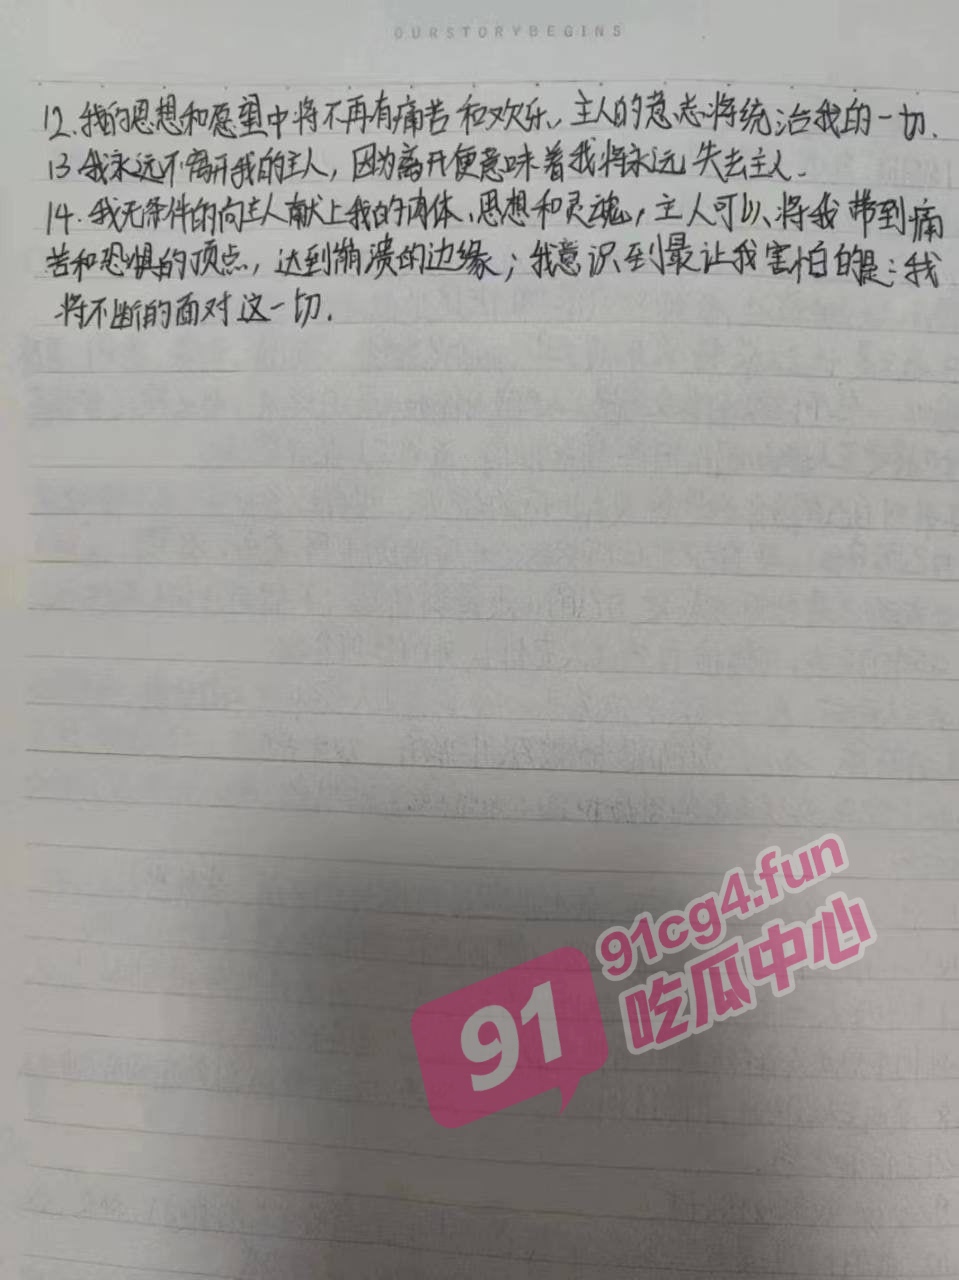 OURSTORYBEGINS
12.我的思想和愿望中将不再有痛苦和欢乐、主人的意志将统治我的一切.
13.我永远不离开我的主人，因为离开便意味着我将永远失去主人.
14.我无条件的向主人献上我的肉体、思想和灵魂，主人可以将我带到痛
苦和恐惧的顶点，达到崩溃的边缘；我意识到最让我害怕的是：我
将不断的面对这一切.
91cg4.fun
91 吃瓜中心